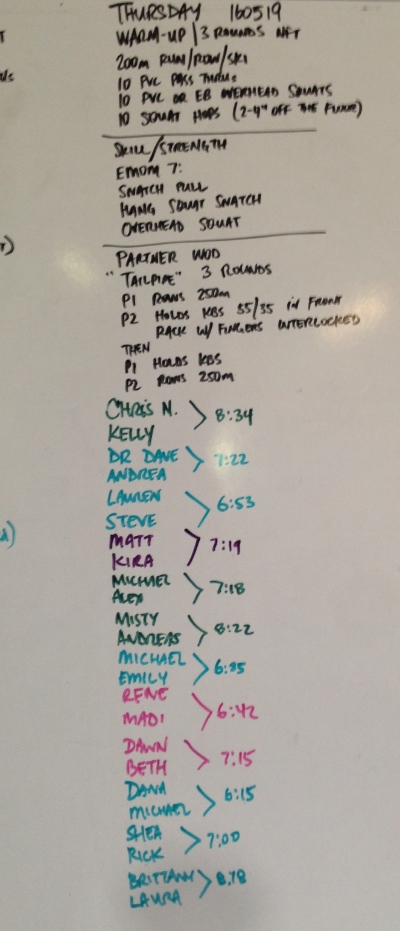 THURSDAY 160519
WARM-UP | 3 ROUNDS NFT
200m RUN/ROW/SKI
10 PVC PASS THRUS
10 PVC OR EB OVERHEAD SQUATS
10 SQUAT HOPS (2-4" OFF THE FLOOR)
SKILL/STRENGTH
EMOM 7:
SNATCH PULL
HANG SQUAT SNATCH
OVERHEAD SQUAT
PARTNER WOD
"TAILPIPE" 3 ROUNDS
P1 ROWS 250m
P2 HOLDS KBS 55/35 IN FRONT
RACK W/ FINGERS INTERLOCKED
THEN
P1 HOLDS KBS
P2 ROWS 250m
CHRIS N.
KELLY > 8:34
DR DAVE
ANDREA > 7:22
LAUREN
STEVE > 6:53
MATT
KIRA > 7:19
MICHAEL
ALEX > 7:18
MISTY
ANDREAS > 8:22
MICHAEL
EMILY >
RENE
MADI > 6:42
DAWN
BETH > 7:15
DANA
MICHAEL > 6:15
SHEA
RICK > 7:00
BRITTANY
LAURA >